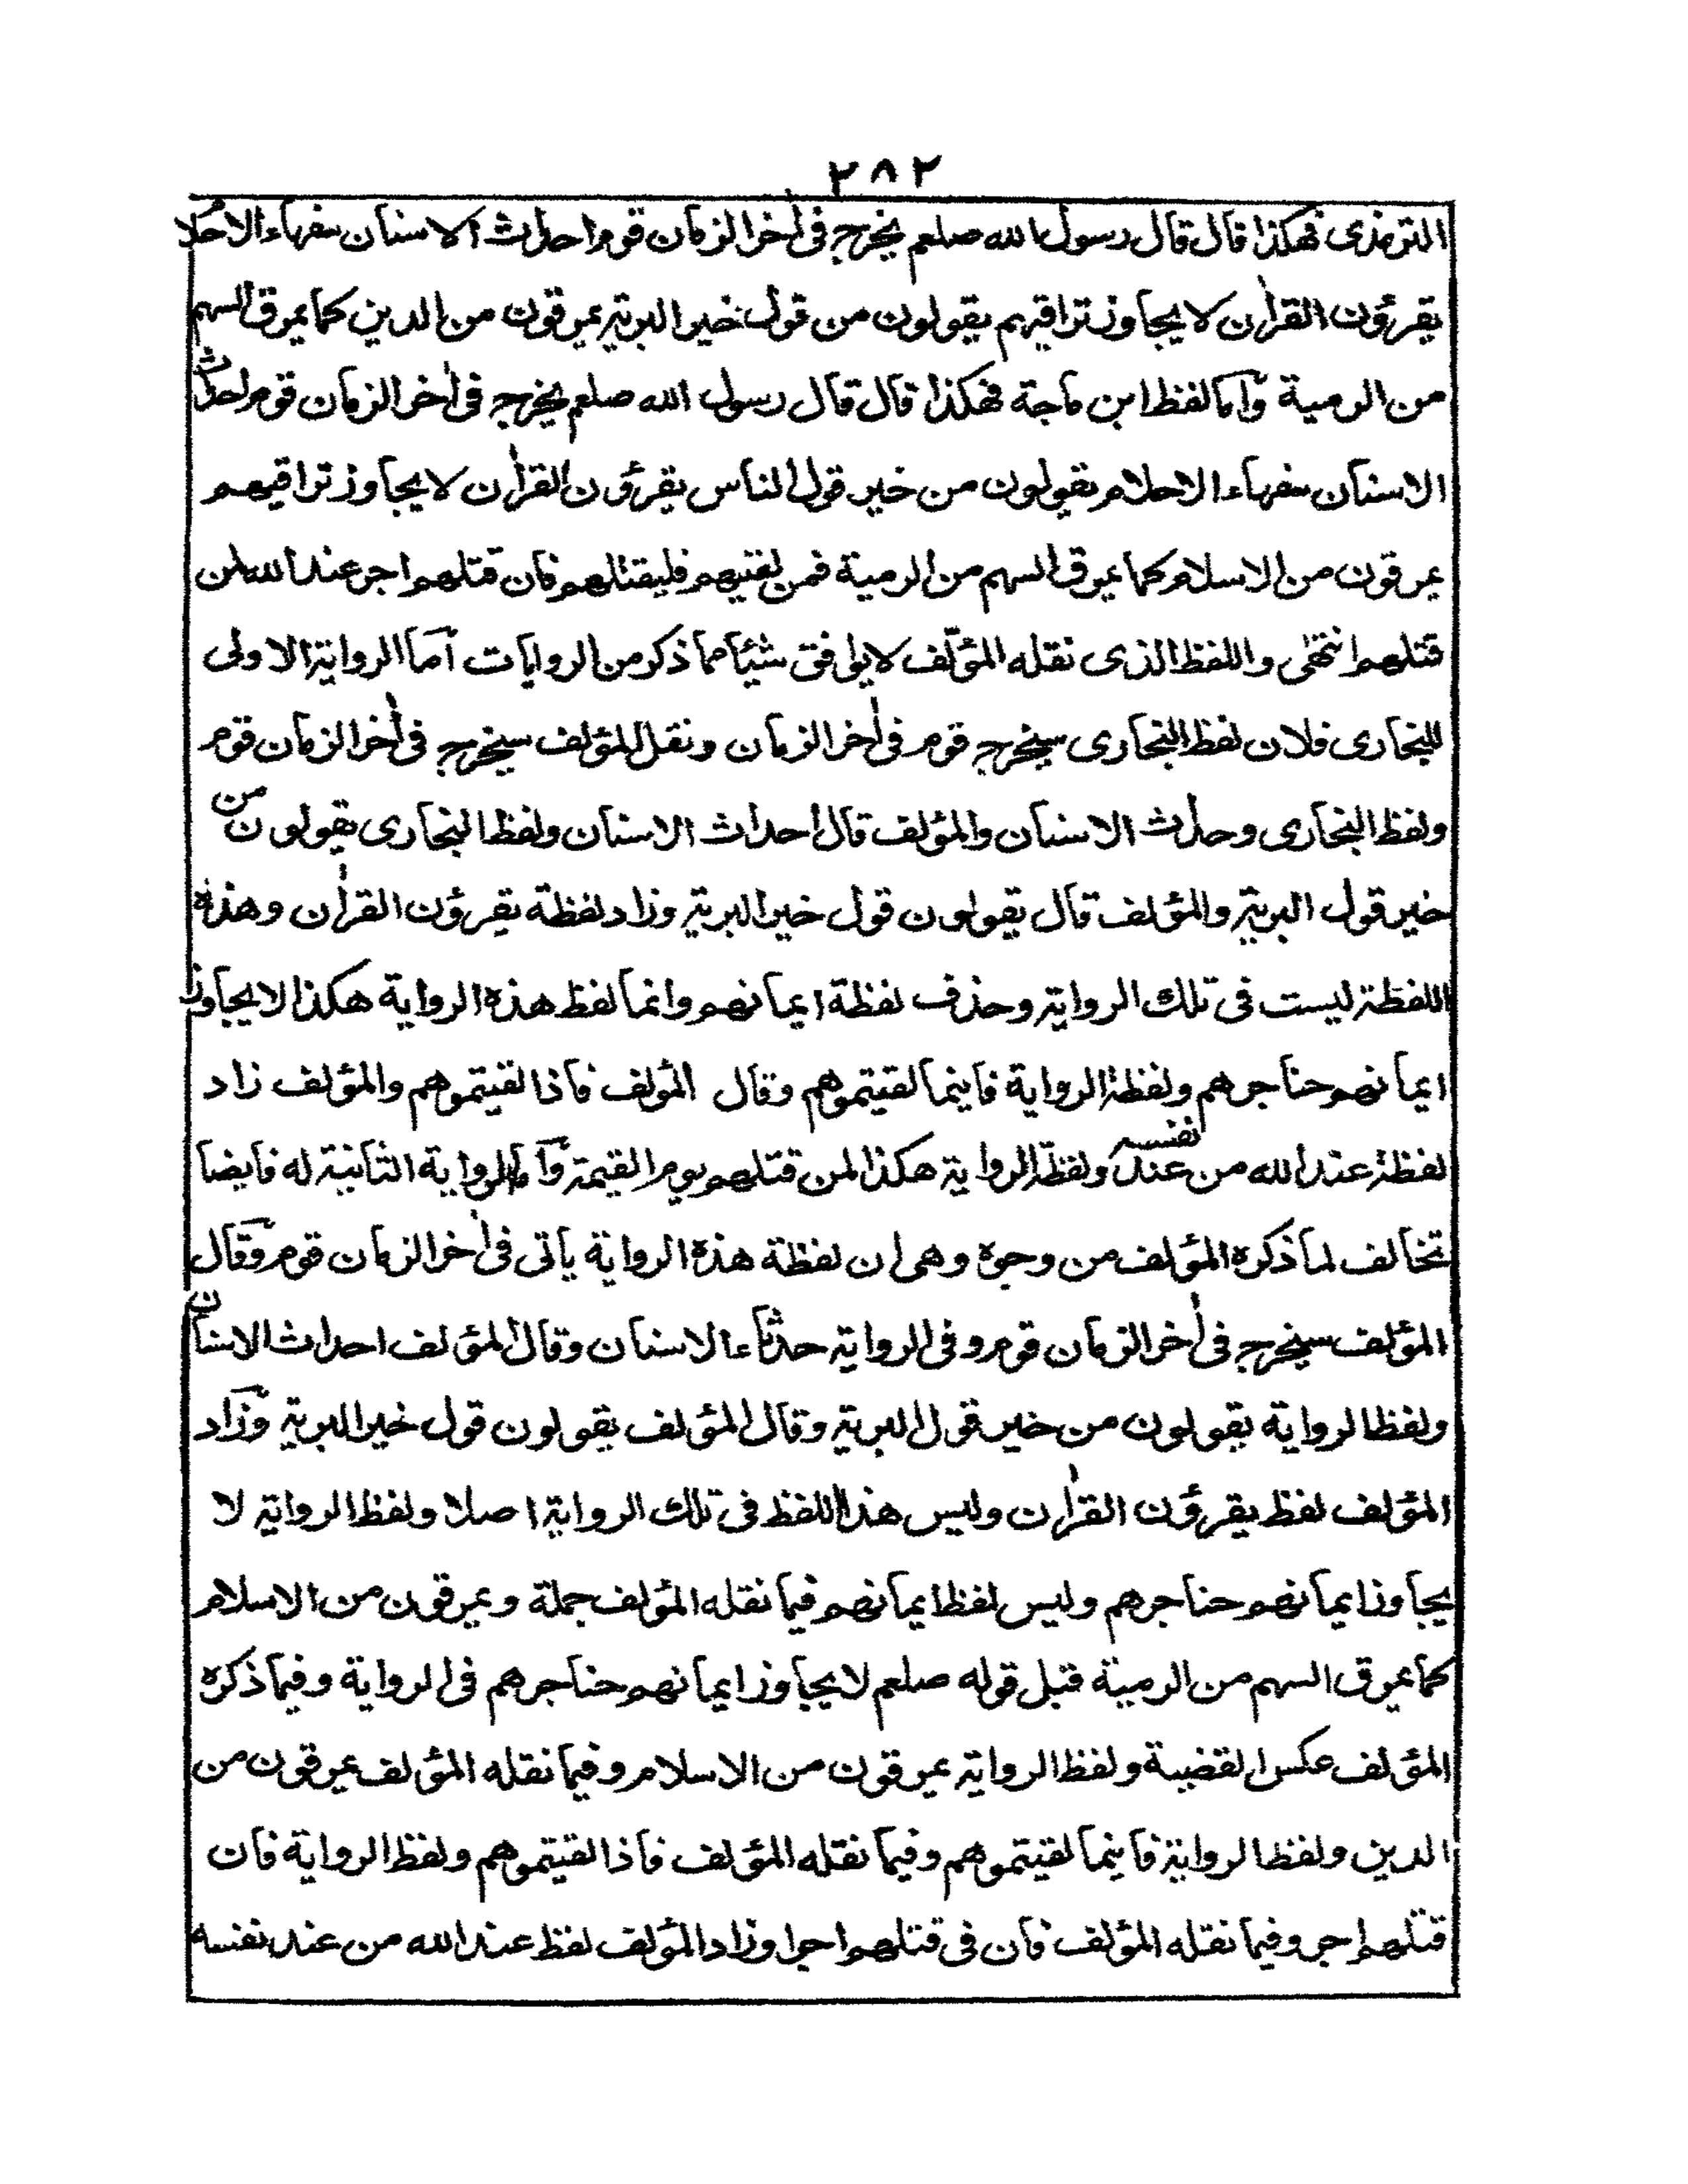 ٢٨٢
الترمذى فهكذا قال قال رسول الله صلعم يخرج فى اٰخر الزمان قوم احداث الاسنان سفهاء الاحلام
يقرؤن القراٰن لا يجاوز تراقيهم يقولون من قول خير البرية يمرقون من الدين كما يمرق السهم
من الرمية وآما لفظ ابن ماجة فهكذا قال قال رسول الله صلعم يخرج فى اٰخر الزمان قوم احداث
الاسنان سفهاء الاحلام يقولون من خير قول الناس يقرؤن القراٰن لا يجاوز تراقيهم
يمرقون من الاسلام كما يمرق السهم من الرمية فمن لقيهم فليقتلهم فان قتلهم اجر عند الله لمن
قتلهم انتهٰى واللفظ الذى نقله المؤلّف لا يوافق شيئا مما ذكر من الروايات آما الرواية الاولى
للبخارى فلان لفظ البخارى سيخرج قوم فى اٰخر الزمان ونقل المؤلف سيخرج فى اٰخر الزمان قوم
ولفظ البخارى وحداث الاسنان والمؤلف قال احداث الاسنان ولفظ البخارى يقولون من
خير قول البرية والمؤلف قال يقولون قول خير البرية وزاد لفظة يقرؤن القراٰن وهذه
اللفظة ليست فى تلك الرواية وحذف لفظة ايمانهم وانما لفظ هذه الرواية هكذا لا يجاوز
ايمانهم حناجرهم ولفظة الرواية فاينما لقيتموهم وقال المؤلف فاذا لقيتموهم والمؤلف زاد
لفظة عند الله من عند نفسه ولفظة الرواية هكذا لمن قتلهم يوم القيمة وآما الرواية الثانية له فايضا
تخالف لما ذكره المؤلف من وجوه وهى ان لفظة هذه الرواية ياتى فى اٰخر الزمان قوم وقال
المؤلف سيخرج فى اٰخر الزمان قوم وفى الرواية حدثاء الاسنان وقال المؤلف احداث الاسنان
ولفظ الرواية يقولون من خير قول البرية وقال المؤلف يقولون قول خير البرية وزاد
المؤلف لفظ يقرؤن القراٰن وليس هذا اللفظ فى تلك الرواية اصلا ولفظ الرواية لا
يجاوز ايمانهم حناجرهم وليس لفظ ايمانهم فيما نقله المؤلف جملة ويمرقون من الاسلام
كما يمرق السهم من الرمية قبل قوله صلعم لا يجاوز ايمانهم حناجرهم فى الرواية وفيما ذكره
المؤلف عكس القضية ولفظ الرواية يمرقون من الاسلام وفيما نقله المؤلف يمرقون من
الدين ولفظ الرواية فاينما لقيتموهم وفيما نقله المؤلف فاذا لقيتموهم ولفظ الرواية فان
قتلهم اجر وفيما نقله المؤلف فان فى قتلهم اجرا وزاد المؤلف لفظ عند الله من عند نفسه